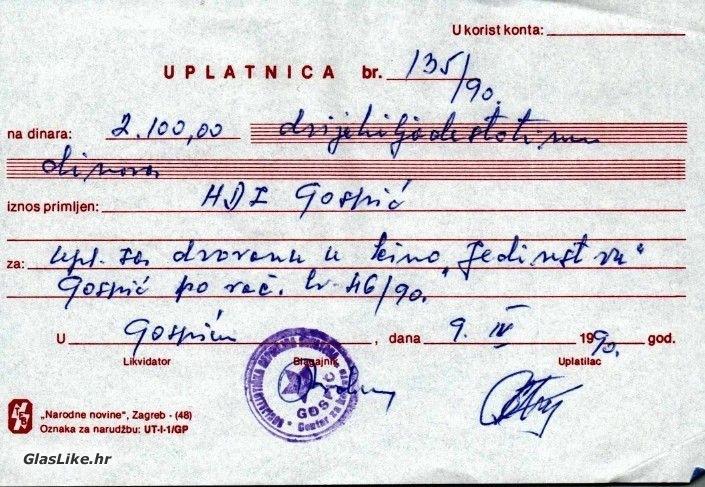 U korist konta:
UPLATNICA br. 135/90.
na dinara: 2.100,00 dvijehiljadestotinu
dinara
iznos primljen: HDZ Gospić
za: upl. za dvoranu u kino "Jedinstvu"
Gospić po rač. br 46/90.
U Gospiću, dana 9. IV 1990. god.
Likvidator Blagajnik Uplatilac
GOSPIĆ
„Narodne novine", Zagreb - (48)
Oznaka za narudžbu: UT-I-1/GP
GlasLike.hr